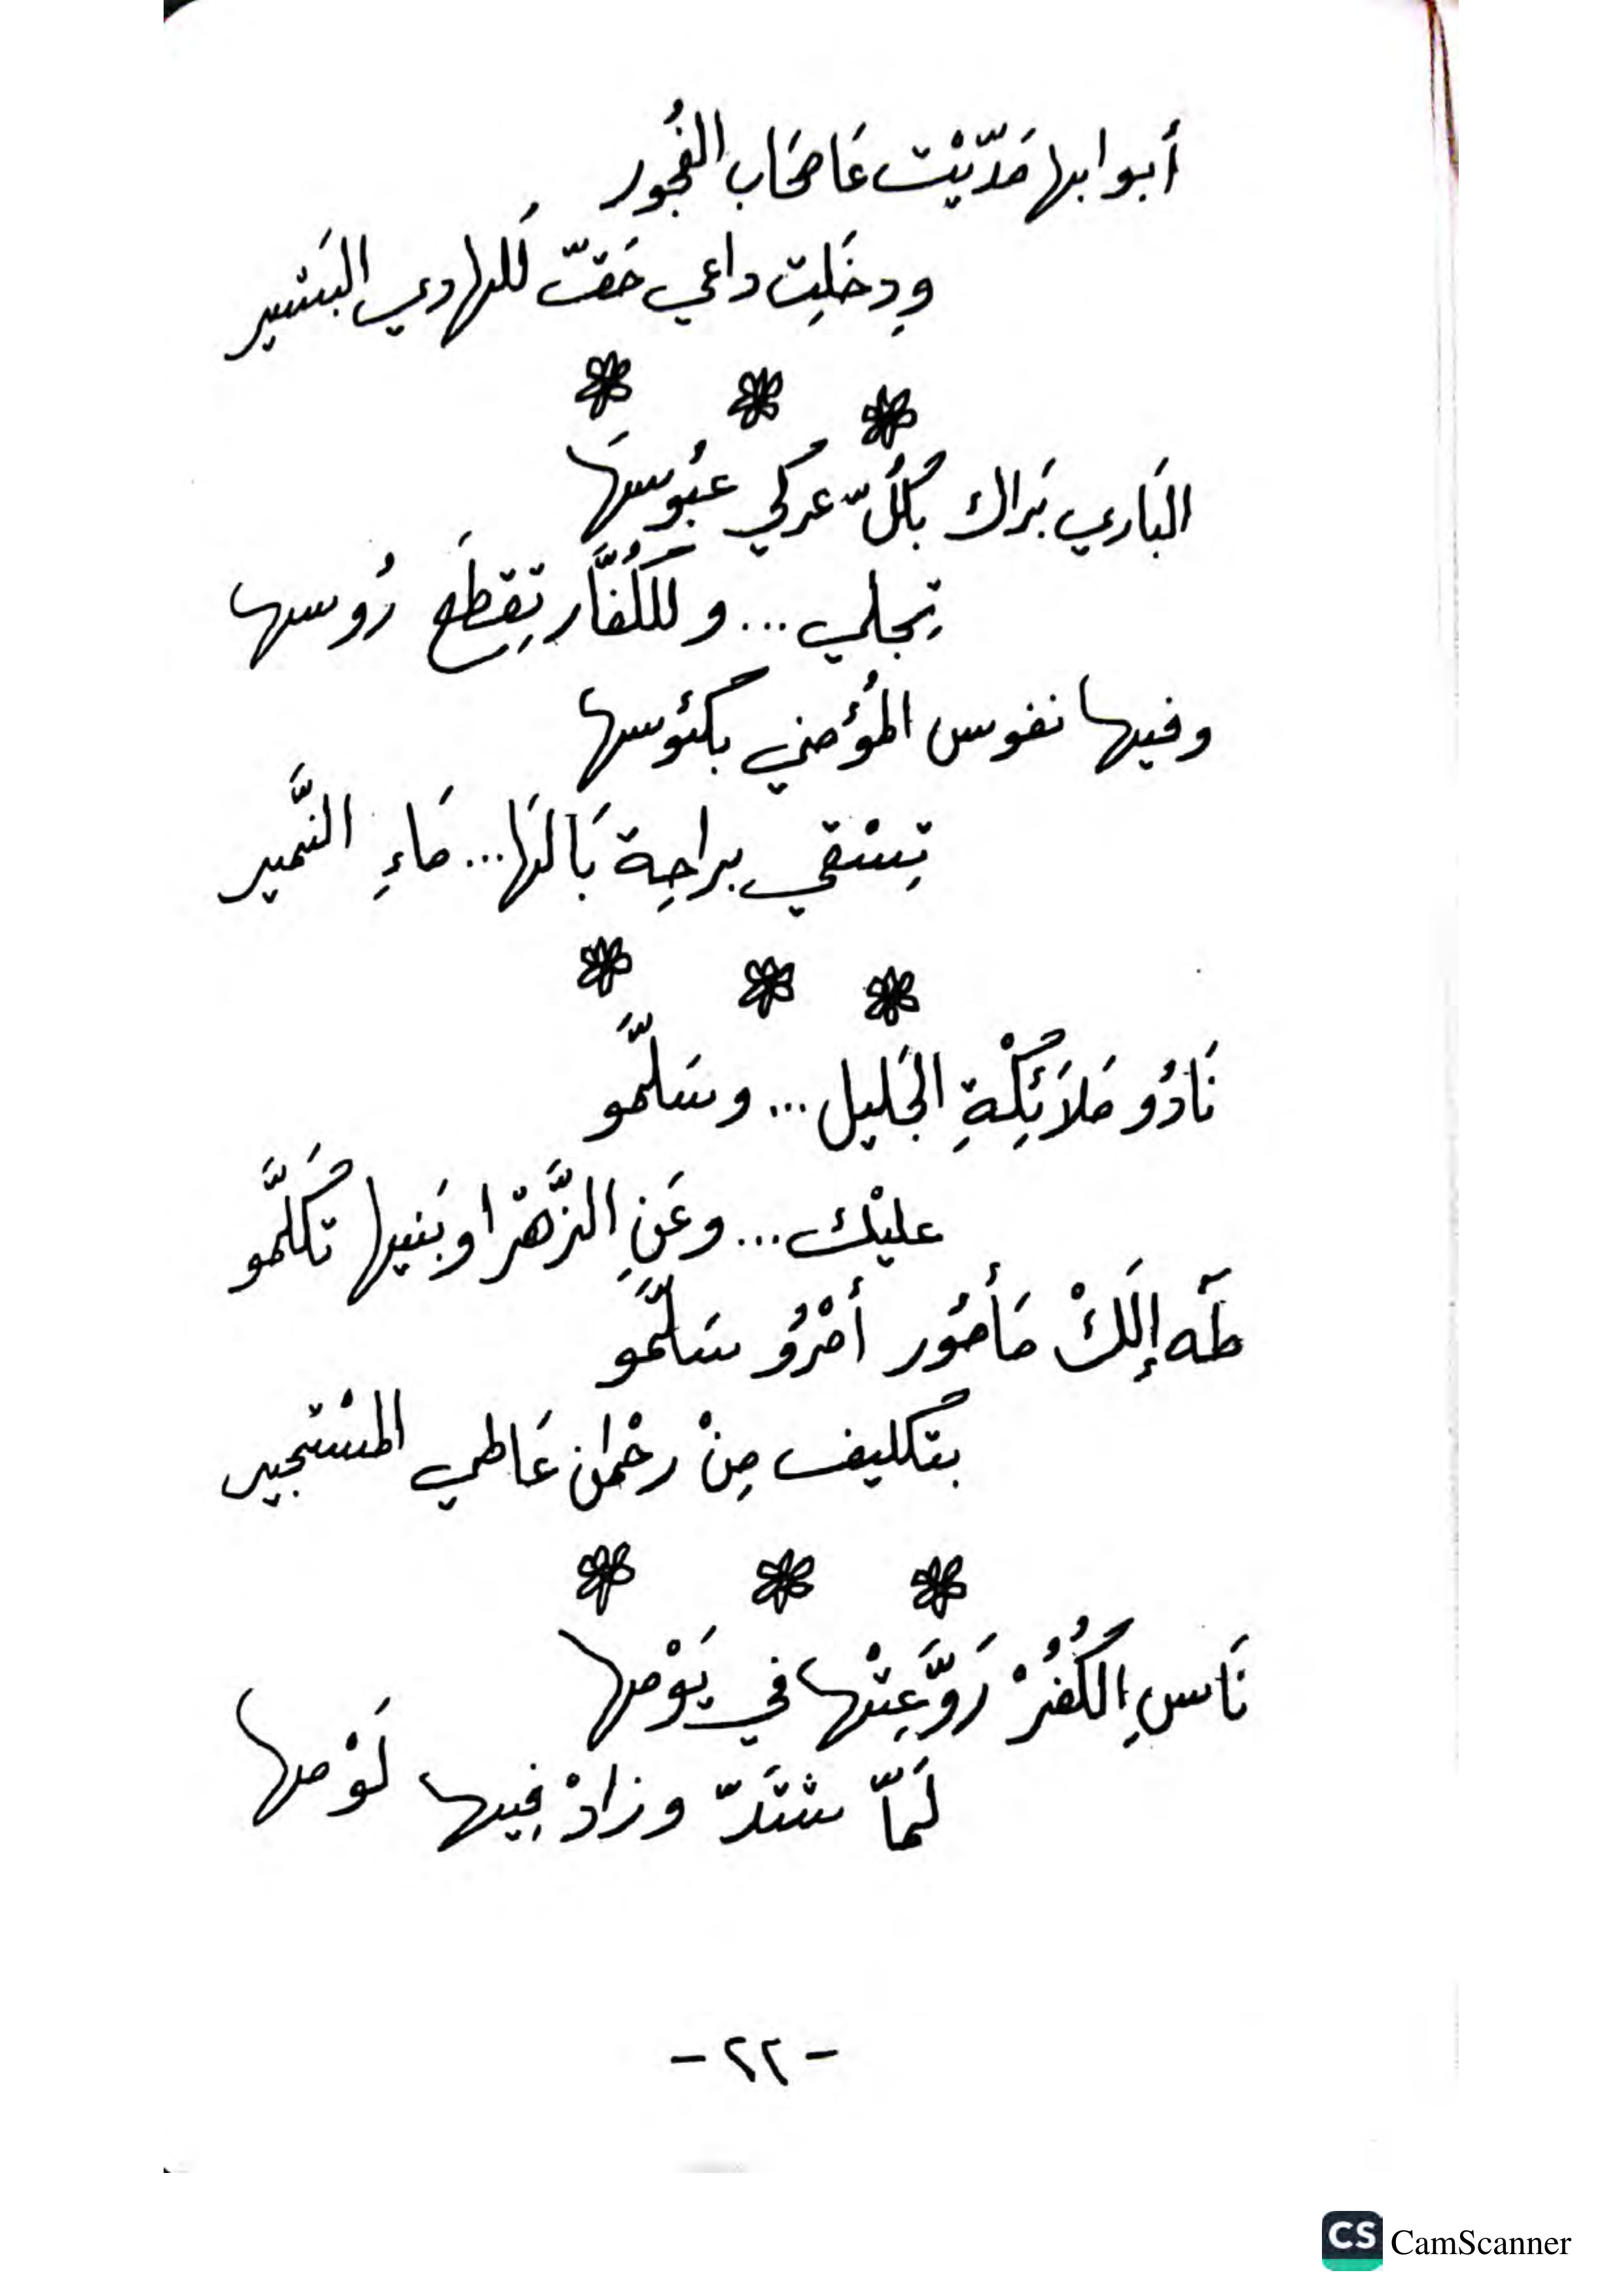 أبوابها مَدّيْت عَاصْحَاب الفُجور
وِدخَلِت داعي حَقّ لَلهادي البَشير
* * *
البَاري بَراك بْكُلّ عركي عبُوسهَا
تِجلي... وللكُفَّار تِقطَع رُوسها
وفيها نفوس المؤُمني بكئوسها
تِسْقي براحِة بَالهَا... مَاءِ النَّمير
* * *
نَادُو مَلاَئِكْةِ الجَليل... وسَلَّمو
عليْك... وعَنِ الزَّهْرا وبَنيها تكَلَّمو
طَه إلَكْ مَأمُور أمْرُو سَلَّمو
بتكليف مِنْ رحْمان عَاطي المسْتجير
* * *
نَاسِ الكُفُرْ رَوَّعِتْها في يَوْمها
لَمّا شتَدّ وزادْ فِيها لَوْمها
- ٢٢ -
CS CamScanner